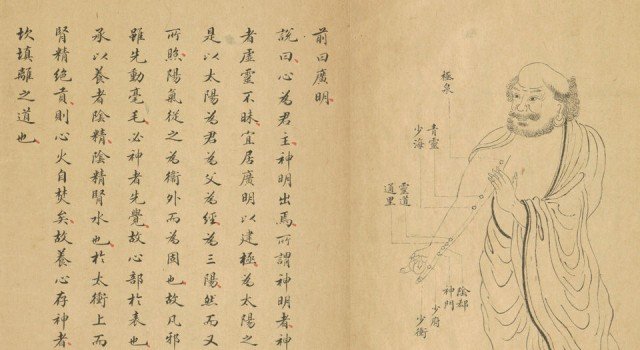 極泉
青靈
少海
靈道
通里
陰郄
神門
少府
少衝
前曰廣明
說曰心為君主神明出焉所謂神明者神
者虛靈不昧宜居廣明以建極為太陽之
是以太陽為君為父為經為三陽然而又
所照陽氣從之為衛外而為固也故凡邪
雖先動毫毛必神者先覺故心部於表也
承以養者陰精陰精腎水也於太衝上而
腎精絕賁則心火自焚矣故養心存神者
坎填離之道也